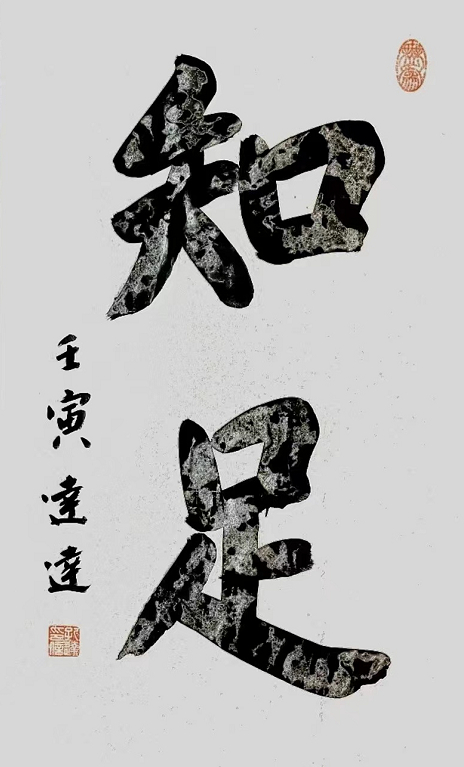 知足
壬寅達達